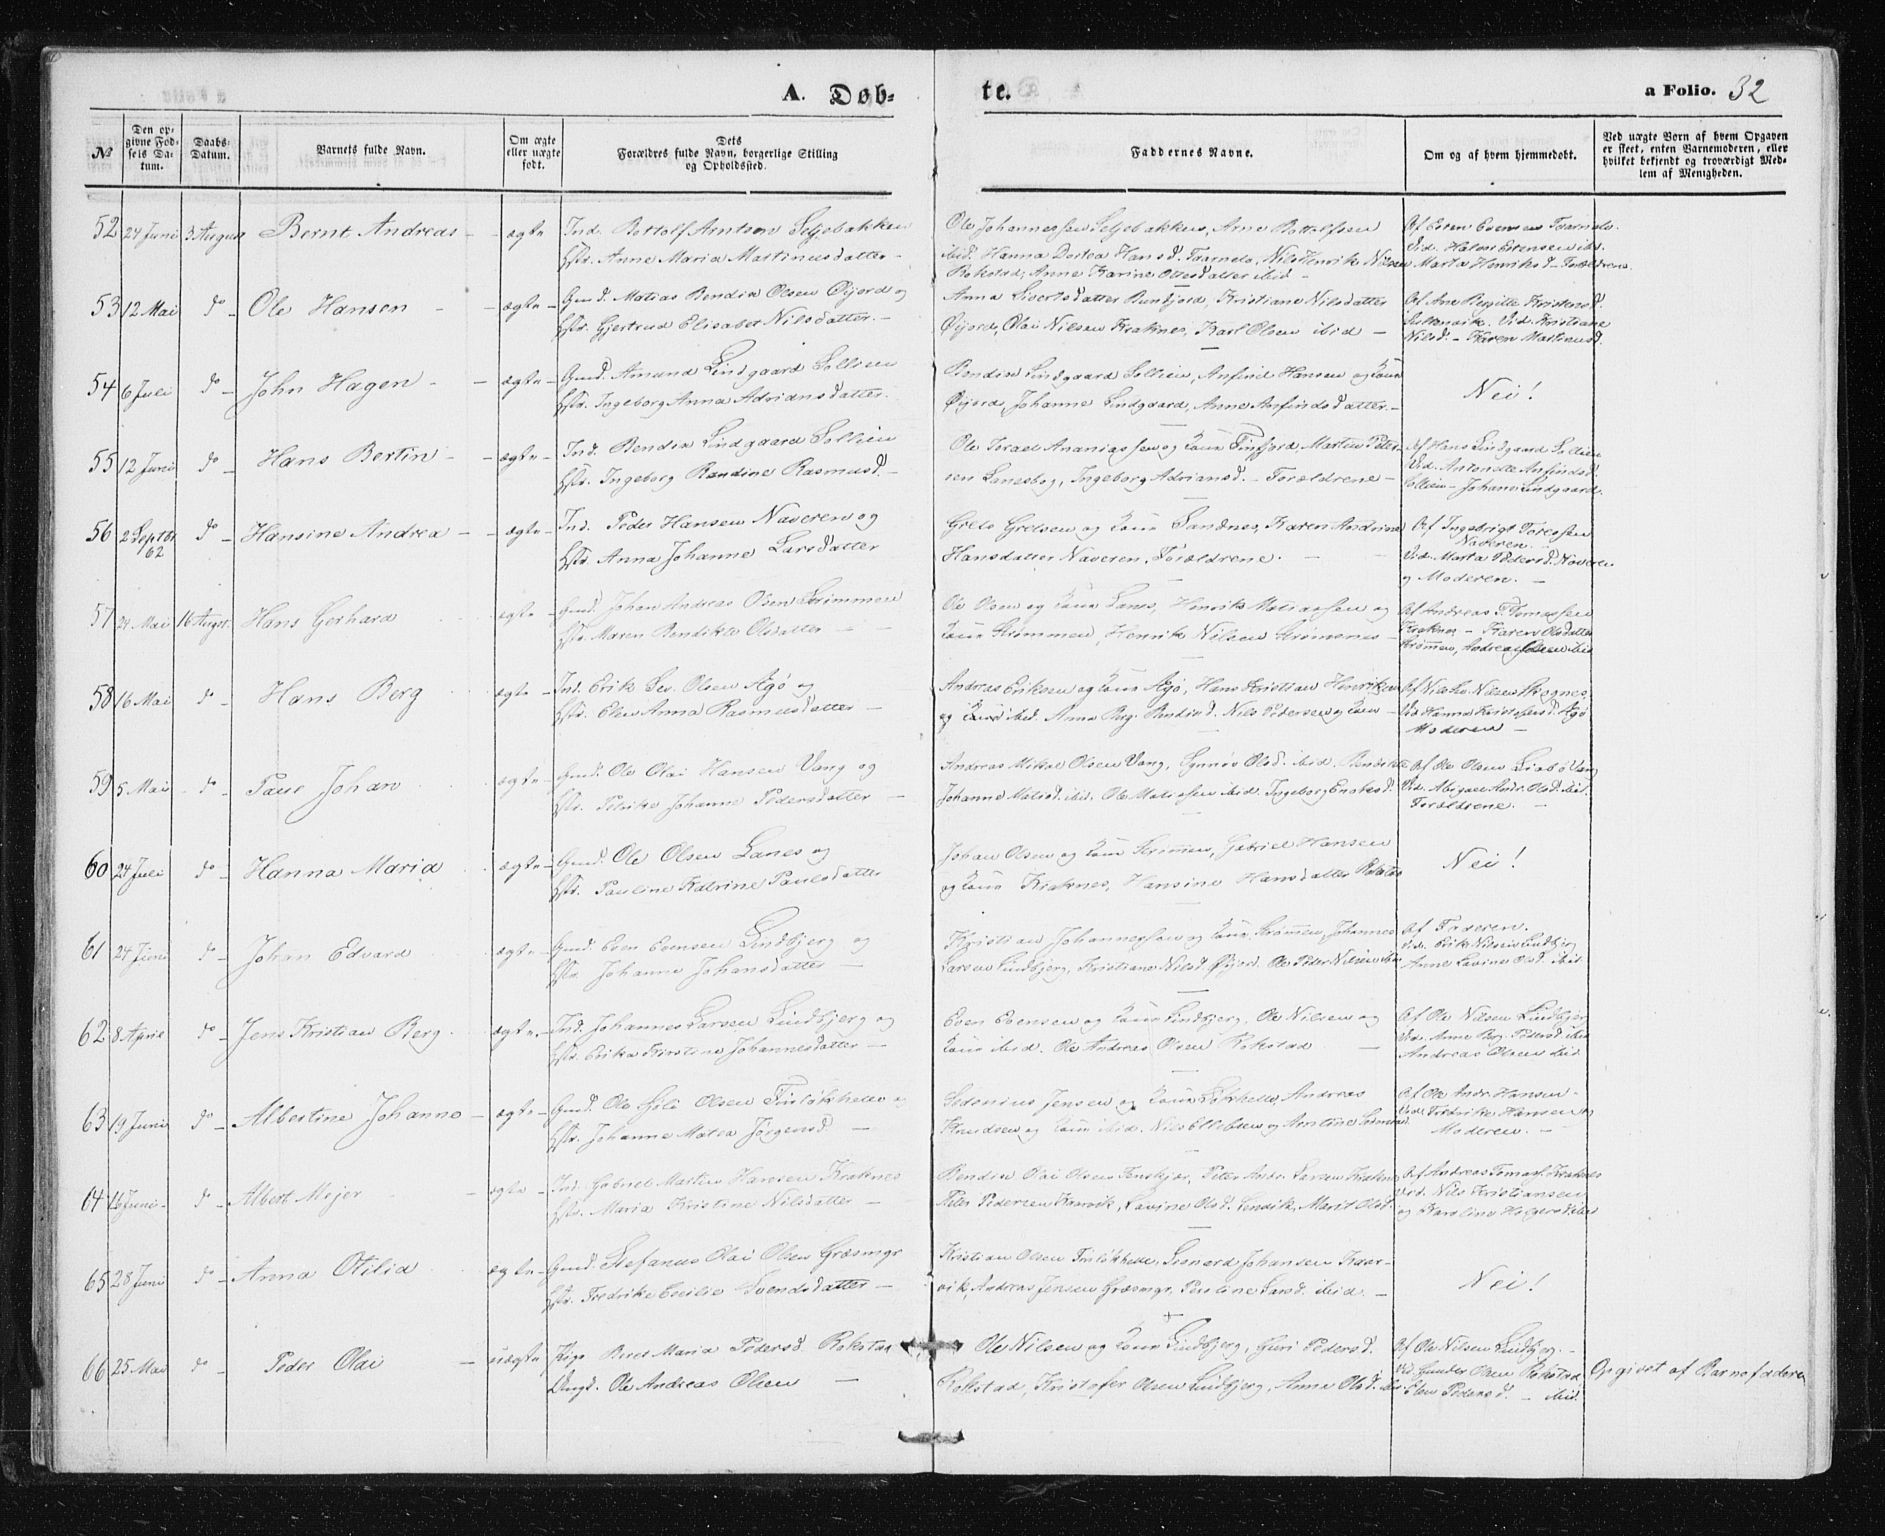 A. Døb-
te.
a Folio. 32
№
Den op-
givne Fød-
sels Da-
tum.
Daabs-
Datum.
Barnets fulde Navn.
Om ægte
eller uægte
født.
Dets
Forældres fulde Navn, borgerlige Stilling
og Opholdssted.
Faddernes Navne.
Om og af hvem hjemmedøbt.
Ved uægte Børn af hvem Opgaven
er skeet, enten Barnemoderen, eller
hvilket bekjendt og troværdigt Med-
lem af Menigheden.
52 24 Juni 3 August Bernt Andreas - ægte Ind. Bottolf Arntsen Seljebakken
Hstr. Anne Maria Martinusdatter -
Ole Johannessen Seljebakken, Arne Bottolfsen
ibid. Hanna Dortea Hansd. Nils Henrik Nilsen
Rokstad, Anne Karine Olesdatter ibid -
Marta Henriksd - Forældrene
53 12 Mai do - Ole Hansen - ægte - Gmd. Matias Bendix Olsen Øijord og
Hstr. Gjertrud Elisabet Nilsdatter. -
Anna Sivertsdatter Kristiane Nilsdatter
Øijord, Olai Nilsen Kraknes, Karl Olsen ibid -
Vid. Kristiane
Nilsd. - Karen Martinusd.
54 6 Juli do - John Hagen - ægte - Gmd. Amund Lindgaard Sollien
Hstr. Ingeborg Anna Adriansdatter.
Bendix Lindgaard Sollien, Anfind Hansen og Kone
Øijord, Johanne Lindgaard, Anne Anfindsdatter. -
Nei!
55 12 Juni do Hans Bertin - ægte - Ind. Bendix Lindgaard Sollien
Hstr. Ingeborg Rasmusd. -
Ole Israel Ananiassen og Kone Finfjord, Martin Peter-
sen Ingeborg Adriansd. - Forældrene -
Af Hans Lindgaard Sollien
Vid. Antonette Anfindsd.
Sollien - Johan Lindgaard.
56 2 Septbr 62 do - Hansine Andrea - ægte - Ind. Peder Hansen Naveren og
Hstr. Anna Johanne Larsdatter
og Kone Sandnes, Karen Andrine
Hansdatter Naveren, Forældrene. -
Af Ingebrigt
Naveren.
Vid. Marta Pedersd. Naveren
og Moderen. -
57 24 Mai 16 August. Hans Gerhard ægte - Gmd. Johan Andreas Olsen Strømmen
Hstr. Maren Bendikte Olsdatter -
Ole Olsen og Kone Lanes, Henrik Matiassen og
Kone Strømmen, Henrik Nilsen
Af Andreas Tomassen
Kraknes - Karen Olsdatter
Strømmen, Andreas Olsen ibid
58 16 Mai do - Hans Berg ægte - Ind. Erik Olsen Agø og
Hstr. Elen Anna Rasmusdatter -
Andreas Eriksen og Kone Agø, Hans Kristian Henriksen
og Kone ibid. Anna Berg. Nils Pedersen og Kone -
Moderen -
59 5 Mai - do - Paul Johan ægte - Gmd. Ole Olai Hansen Vang og
Hstr. Petrikke Johanne Pedersdatter -
Andreas Mikal Olsen Vang, Olsd. ibid.
Johanne ibid. Ole Matiassen ibid. Ingeborg
Af Ole Olsen
Vid. Abigael Andr. Olsd. ibid.
Forældrene. -
60 24 Juli do - Hanna Maria ægte - Gmd. Ole Olsen Lanes og
Hstr. Pauline Katrine Paulsdatter
Johan Olsen og Kone Strømmen, Gabriel Hansen
og Kone Kraknes, Hansine Hansdatter Rokstad
Nei!
61 24 Juni do - Johan Edvard ægte - Gmd. Even Evensen Lindbjerg og
Hstr. Johanna Johansdatter
Kristian Johannessen og Kone Strømmen, Johannes
Larsen Lindbjerg, Kristiane Nilsd. Øijord. Ole Peder Nilsen ibid
Af Faderen.
Vid. Erik Nilsen Lindbjerg
Anne Lavine Olsd. ibid.
62 8 April do - Jens Kristian Berg. ægte. - Ind. Johannes Larsen Lindbjerg og
Hstr. Erika Kirstine Johannesdatter -
Even Evensen og Kone Lindbjerg, Ole Nilsen og
Kone ibid. Ole Andreas Olsen Rokstad -
Af Ole Nilsen Lindbjerg
Vid. Anne Berg. Pedersd. ibid
Andreas Olsen ibid.
63 19 Juni do - Albertine Johanna - ægte - Gmd. Ole Olsen
Hstr. Johanne Matea Jørgensd. -
Sedenius Jensen og Kone Andreas
Knudsen og Kone ibid.
Af Ole Andr. Hansen -
Vid. Fredrik Hansen og
Moderen. -
64 16 Juni - do - Albert Mejer - ægte - Ind. Gabriel Martin Hansen Kraknes
Hstr. Maria Kristine Nilsdatter -
Bendix Olai Olsen Peter Andr. Larsen
Peter Pedersen Kaarvik, Lavine Olsd. Marit Olsd.
Af Andreas Tomass. Kraknes
Vid. Nils Kristiansen
og Karoline ibid
65 28 Juni do - Anna Otilia ægte - Gmd. Stefanus Olai Olsen Græsmyr
Hstr. Fredrikke Cecilie Svendsdatter -
Kristian Olsen Leonard Johansen Kaar-
vik, Andreas Jensen Græsmyr, Larsd. ibid. -
Nei!
66 25 Mai do - Peder Olai - uægte Pige Maria Pedersd. Rokstad
Ungd. Ole Andreas Olsen -
Ole Nilsen og Kone Lindbjerg, Guri Pedersd.
Rokstad, Kristofer Olsen Lindbjerg, Anna Olsd. ibid
Af Ole Nilsen Lindbjerg. -
Vid Gunder Olsen Rokstad
Elen Pedersd. - ibid.
Opgivet af Barnefaderen